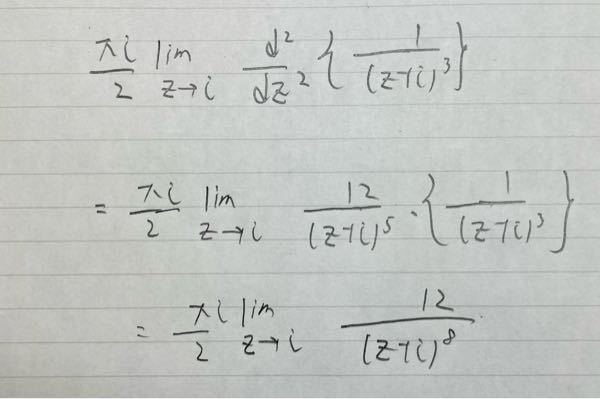 πi/2 lim z→i d²/dz² { 1/(z+i)³ }
= πi/2 lim z→i 12/(z+i)⁵ · { 1/(z+i)³ }
= πi/2 lim z→i 12/(z+i)⁸